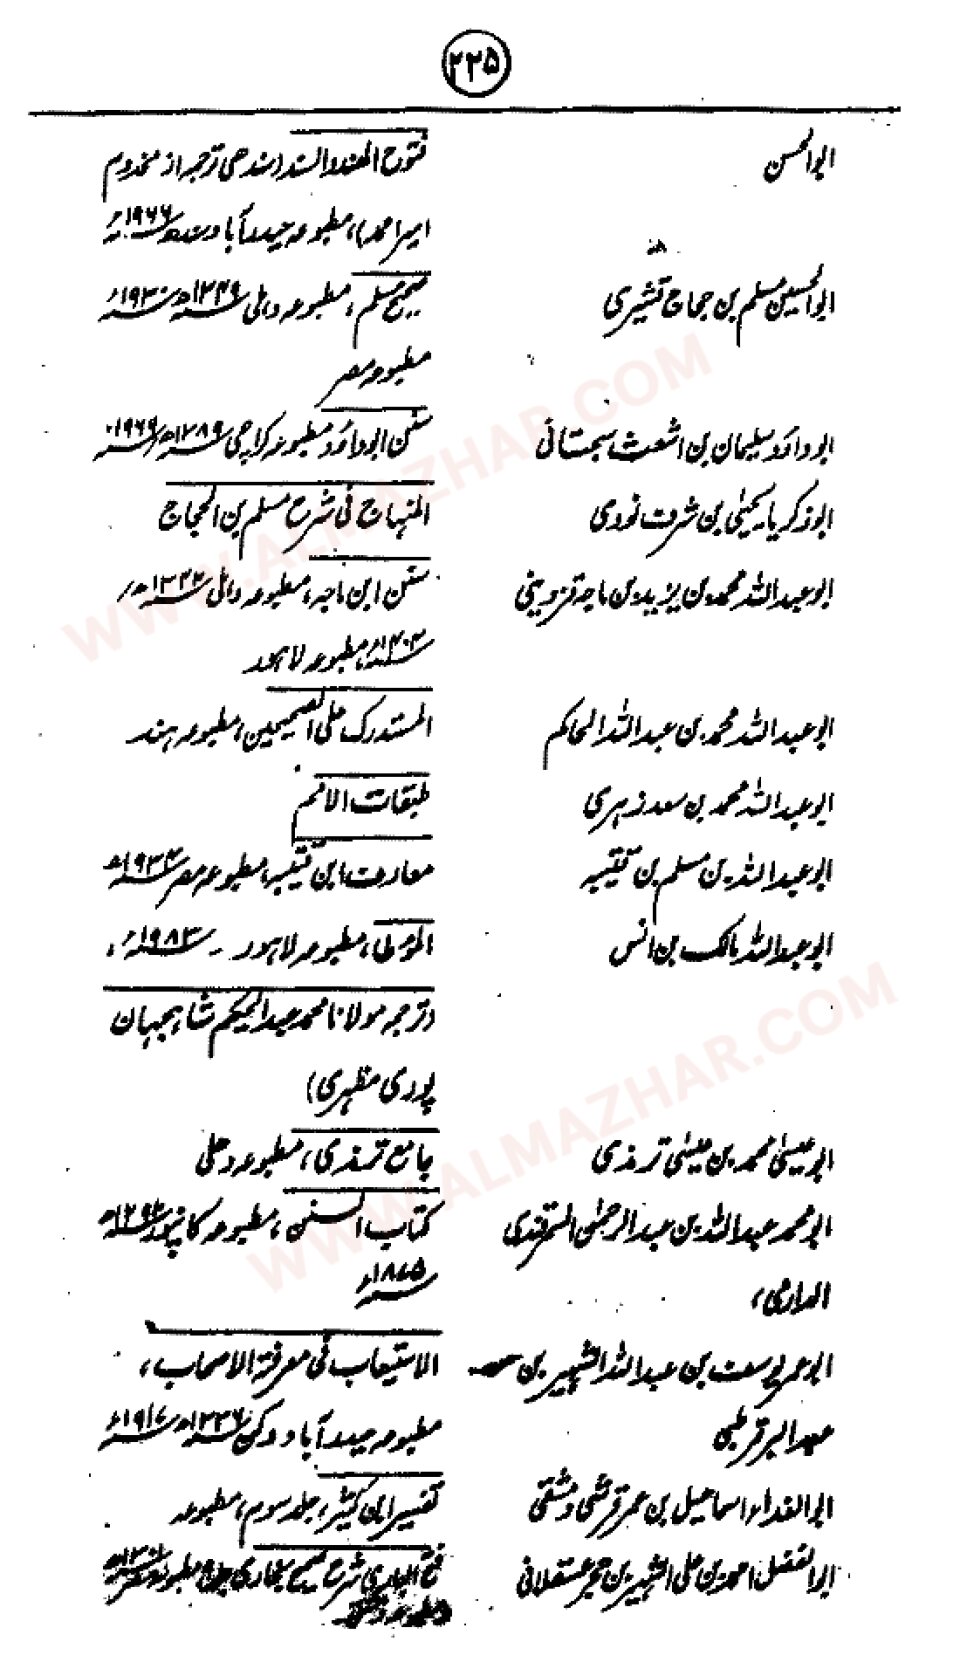 ۲۲۵
ابوالحسن فتوح الهند والسند (سندھی ترجمہ از مخدوم
امیر احمد)، مطبوعہ حیدرآباد سندھ ۱۹۶۶ء
ابوالحسین مسلم بن حجاج قشیری صحیح مسلم، مطبوعہ دہلی ۱۳۴۹ھ ۱۹۳۰ء
مطبوعہ مصر
ابوداؤد سلیمان بن اشعث سجستانی سنن ابوداؤد مطبوعہ کراچی ۱۳۸۹ھ/۱۹۶۹ء
ابوزکریا یحییٰ بن شرف نووی المنہاج فی شرح مسلم بن الحجاج
ابوعبداللہ محمد بن یزید بن ماجہ قزوینی سنن ابن ماجہ، مطبوعہ دہلی
مطبوعہ لاہور
ابوعبداللہ محمد بن عبداللہ الحاکم المستدرک علی الصحیحین، مطبوعہ ہند
ابوعبداللہ محمد بن سعد زہری طبقات الامم
ابوعبداللہ بن مسلم بن قتیبہ معارف ابن قتیبہ، مطبوعہ مصر ۱۹۳۴ء
ابوعبداللہ مالک بن انس المؤطا، مطبوعہ لاہور - ۱۹۸۳ء،
(ترجمہ مولانا محمد عبدالحکیم شاہجہان
پوری مظہری)
ابوعیسیٰ محمد بن عیسیٰ ترمذی جامع ترمذی، مطبوعہ دہلی
ابومحمد عبداللہ بن عبدالرحمٰن السمرقندی کتاب السنن، مطبوعہ کانپور ۱۲۹۲ھ
الدارمی، ۱۸۷۵ء
ابوعمر یوسف بن عبداللہ الشہیر بن الاستیعاب فی معرفۃ الاصحاب،
عبدالبر قرطبی مطبوعہ حیدرآباد دکن ۱۳۳۶ھ ۱۹۱۷ء
ابوالفداء اسماعیل بن عمر قرشی دمشقی تفسیر ابن کثیر، جلد سوم، مطبوعہ
ابوالفضل احمد بن علی الشہیر بن حجر عسقلانی فتح الباری شرح صحیح بخاری
WWW.ALMAZHAR.COM
WWW.ALMAZHAR.COM